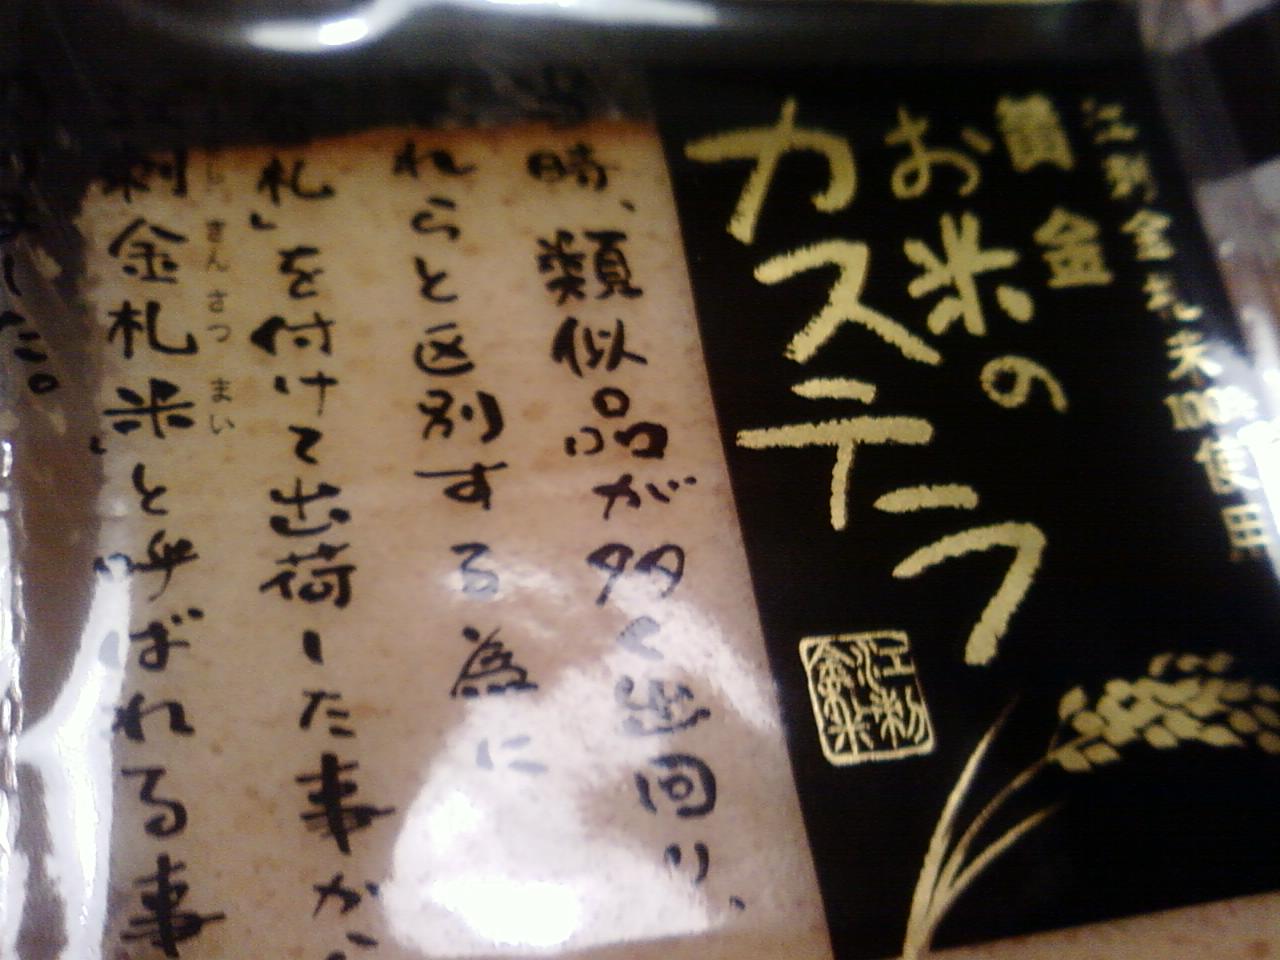 江刺金札米100%使用
金
お米の
カステラ
江刺
金札米
当時、類似品が多く出回り、
れらと区別する為に
札」を付けて出荷した事か
きんさつまい
刺金札米と呼ばれる事
ました。